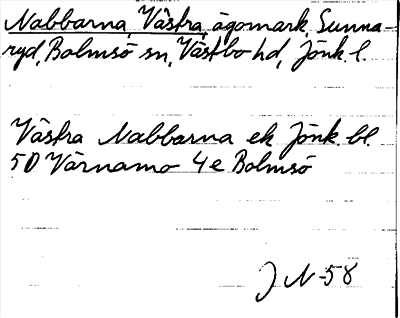 Nabbarna, Västra, ägomark, Sunna-
ryd, Bolmsö sn, Västbo hd, Jönk. l.
Västra Nabbarna ek Jönk. bl.
50 Värnamo 4e Bolmsö
J N-58